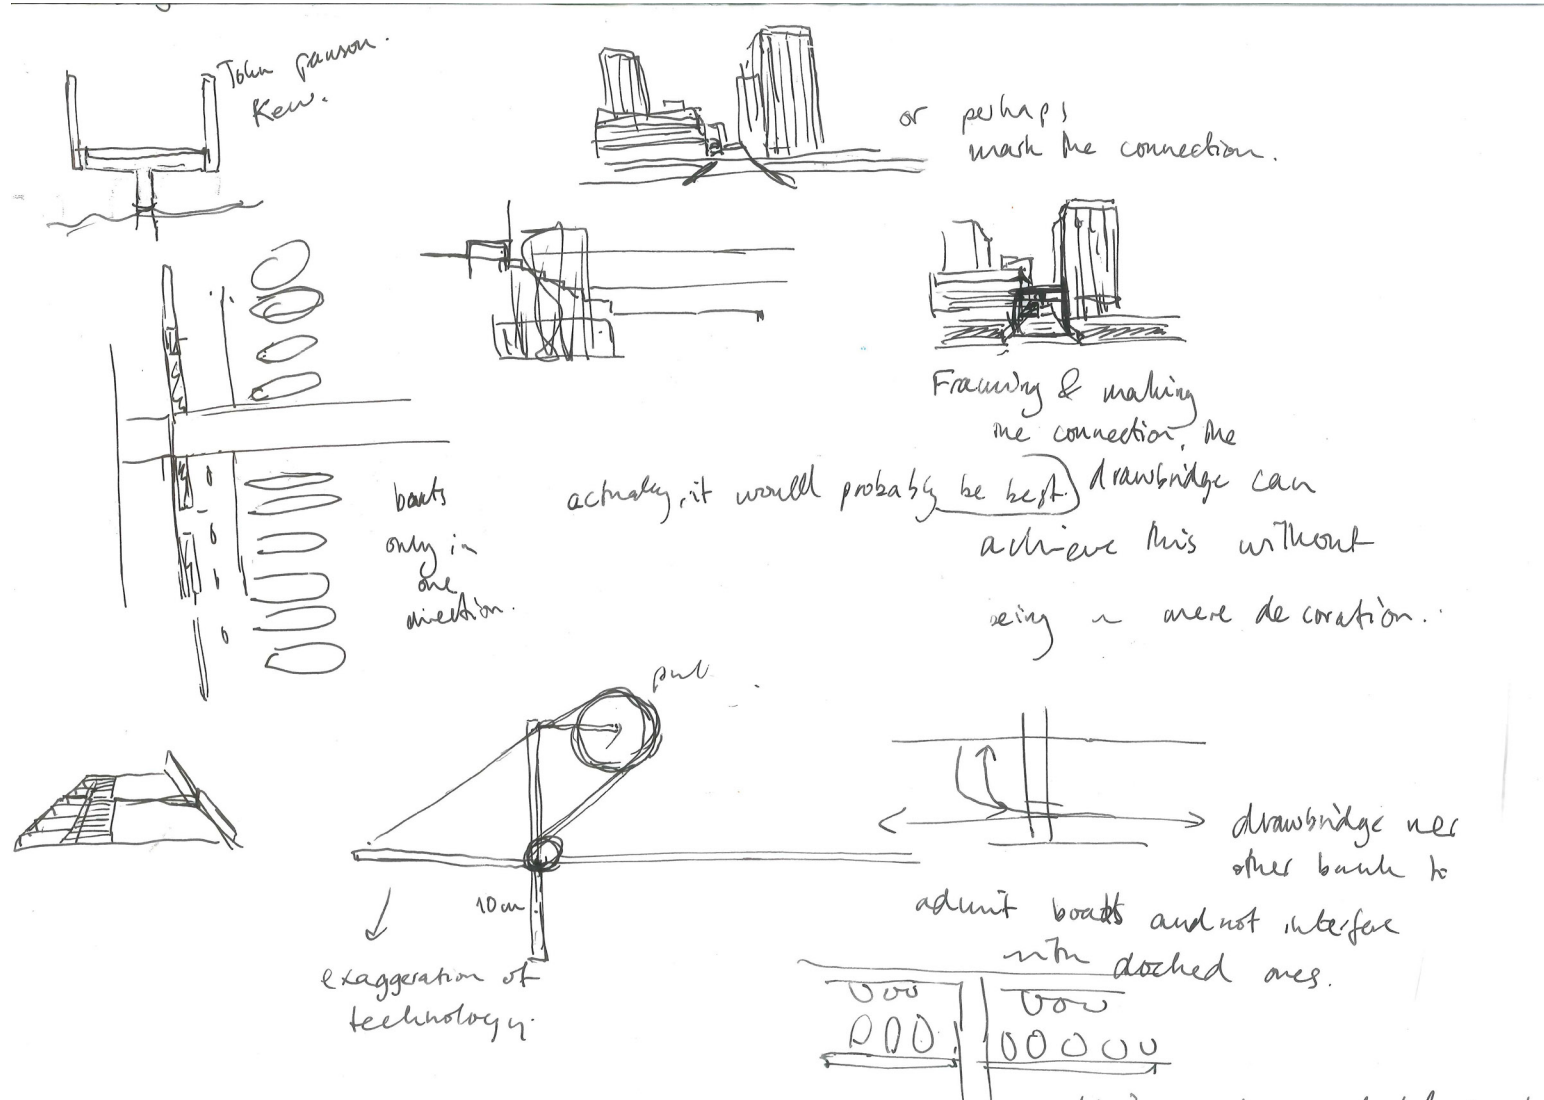 John pawson.
Kew.
or perhaps
mark the connection.
Framing & making
the connection, the
drawbridge can
achieve this without
being mere decoration.
actually, it would probably be best.
boats
only in
one
direction.
pull
10m
exaggeration of
technology.
drawbridge
other bank to
admit boats and not interfere
with docked ones.